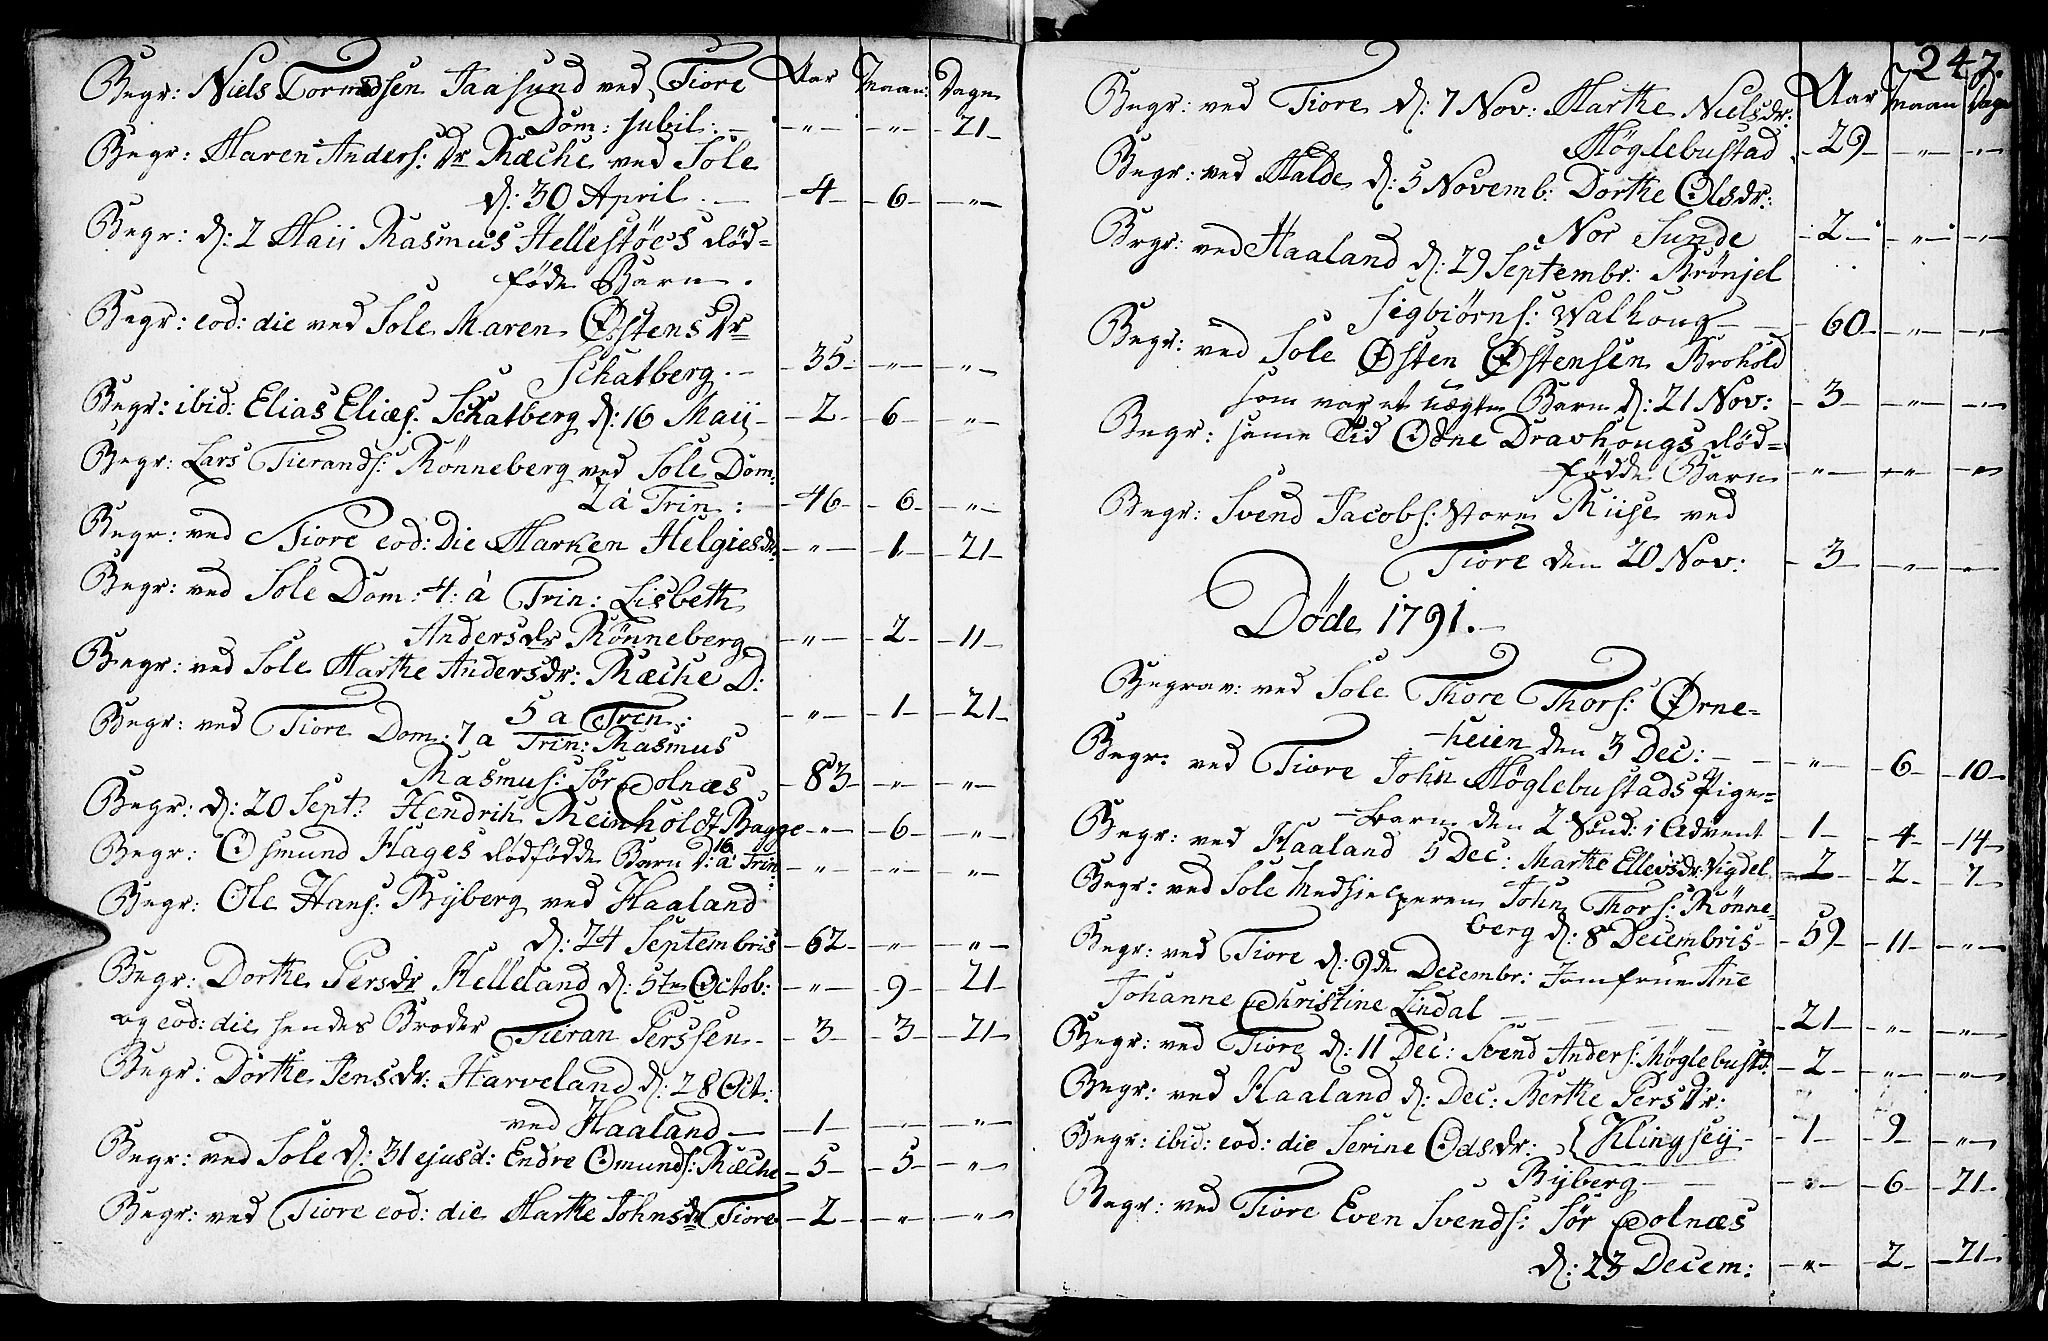 Aar Maan: Dage
Begr: Niels Tormodsen Jaasund ved Tiore
Dom: jubil: - -"- -"- -21-
Begr: Maren Anders: Dr Ræche ved Sole
d: 30 April. - -4- -6- -"-
Begr: d: 2 Maij Rasmus Hellestöe's död-
föde Barn.
Begr: eod: die ved Sole Maren Østens Dr
Schatberg. - -35- -"- -"-
Begr: ibid: Elias Eliæs: Schatberg d: 16 Maij -2- -6- -"-
Begr: Lars Tierands: Rönneberg ved Sole Dom:
2 à Trin: -46- -6- -"-
Begr: ved Tiore eod: Die Marken Helgiesdr: -"- -1- -21-
Begr: ved Sole Dom: 4: à Trin: Lisbeth
Andersdr Rönneberg -"- -2- -11-
Begr: ved Sole Marthe Andersdr: Ræche D:
5 a Trin: -"- -1- -21-
Begr: ved Tiore Dom: 7 a Trin: Rasmus
Rasmus: Sör Colnæs -83- -"- -"-
Begr: d: 20 Sept: Hendrik Reinholdt Bagge -"- -6- -"-
Begr: Osmund Hages dödfödde Barn D: 16 à Trin: -"- -"- -"-
Begr: Ole Hans: Rijberg ved Haaland
d: 24 Septembris -62- -"- -"-
Begr: Dorthe Persdr Helleland d: 5te Octob: -"- -9- -21-
og eod: die hendes Broder Tieran Perssen -3- -3- -21-
Begr: Dorthe Jensdr: Harveland d: 28 Oct:
ved Haaland -1- -"- -"-
Begr: ved Sole d: 31 ejusd: Endre Omunds: Ræche -5- -5- -"-
Begr: ved Tiore eod: die Marthe Johnsdr Tiore -2- -"- -"-
247.
Aar Maan Dage
Begr: ved Tiore d: 7 Nov: Marthe Nielsdr:
Höglebustad -29- -"- -"-
Begr: ved Malde d: 5 Novemb: Dorthe Olsdr:
Nor Sunde -2- -"- -"-
Begr: ved Haaland d: 29 Septembr: Brönjel
Sigbiörns: Walhoug -60- -"- -"-
Begr: ved Sole Østen Østensen Brohold
som var et uægte Barn d: 21 Nov: -3- -"- -"-
Begr: samme Tid Odne Dravhougs död-
födde Barn -"- -"- -"-
Begr: Svend Jacobs: Store Riise ved
Tiore den 20 Nov: -3- -"- -"-
Döde 1791.
Begrav: ved Sole Thore Thors: Ørne-
heien den 3 Dec: -"- -6- -10-
Begr: ved Tiore John Höglebustads Pige-
Barn den 2 Sönd: i Advent -1- -4- -14-
Begr: ved Haaland 5 Dec: Marthe Ellevsdr: Vigdel -2- -2- -7-
Begr: ved Sole Medhielperen John Thors: Rönne-
berg d: 8 Decembris -59- -11- -"-
Begr: ved Tiore d: 9de Decembr: Jomfrue Ane
Johanne Christine Lindal -21- -"- -"-
Begr: ved Tiore d: 11 Dec: Svend Anders: Möglebustd: -2- -"- -"-
Begr: ved Haaland d: Dec: Berthe Pers Dr:
Klingseij -1- -9- -"-
Begr: ibid: eod: die Serine Odsdr:
Rijberg -"- -6- -21-
Begr: ved Tiore Even Svends: Sör Colnæs
d: 23 Decem: -"- -2- -21-